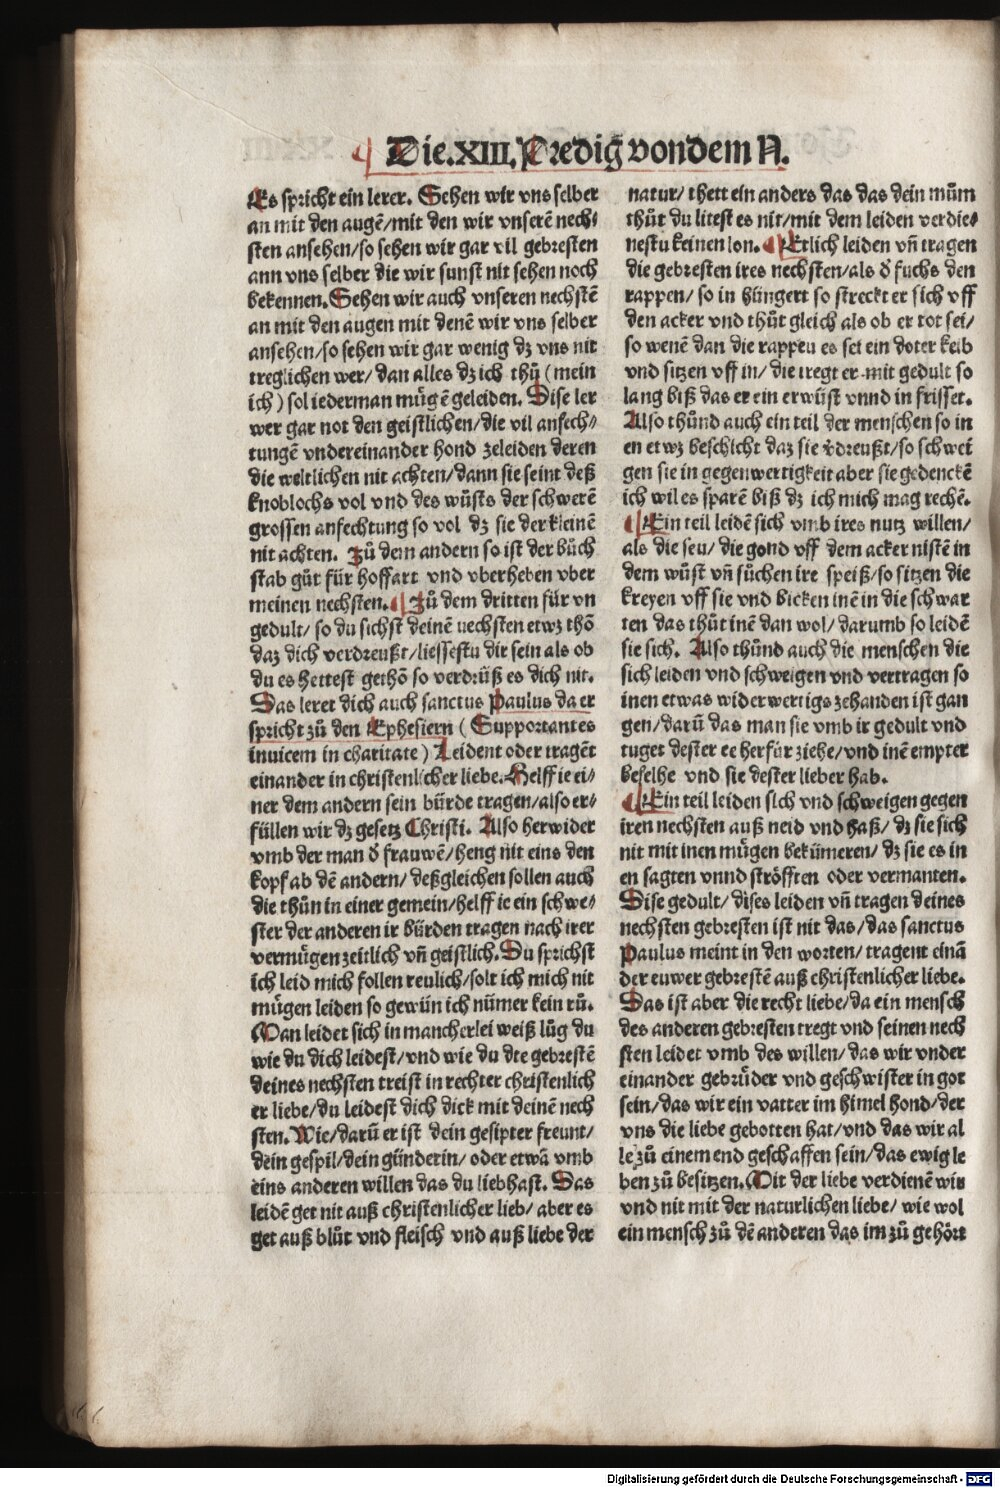 Die.XIII.Predig vondem A.
Es spricht ein lerer. Sehen wir vns selber
an mit den augē/mit den wir vnserē nech⸗
sten ansehen/so sehen wir gar vil gebresten
ann vns selber die wir sunst nit sehen noch
bekennen. Sehen wir auch vnseren nechstē
an mit den augen mit denē wir vns selber
ansehen/so sehen wir gar wenig dz vns nit
treglichen wer/ dan alles dz ich thuͦ (mein
ich) sol iederman muͤgē geleiden. Dise ler
wer gar not den geistlichen/die vil anfech⸗
tungē vndereinander hond zeleiden deren
die weltlichen nit achten/dann sie seint deß
knoblochs vol vnd des wuͤsts der schwerē
grossen anfechtung so vol dz sie der kleinē
nit achten. Zuͦ dem andern so ist der buͦch
stab guͦt für hoffart vnd vberheben vber
meinen nechsten. Zuͦ dem dritten für vn
gedult/ so du sichst deinē nechsten etwz thō
daz dich verdreußt/liessestu dir sein als ob
du es hettest gethō so verdrüß es dich nit.
Das leret dich auch sanctus Paulus da er
spricht zuͦ den Ephesiern (Supportantes
inuicem in charitate) Leident oder tragēt
einander in christenlicher liebe. Helff ie ei⸗
ner dem andern sein bürde tragen/also er⸗
füllen wir dz gesetz Christi. Also herwider
vmb der man d̓ frauwē/heng nit eins den
kopf ab dē andern/ deßgleichen sollen auch
die thuͦn in einer gemein/helff ie ein schwe⸗
ster der anderen ir bürden tragen nach irer
vermuͤgen zeitlich vn̄ geistlich. Du sprichst
ich leid mich follen reulich/solt ich mich nit
muͤgen leiden so gewün ich nümer kein ruͦ.
Man leidet sich in mancherlei weiß luͦg du
wie du dich leidest/vnd wie du die gebrestē
deines nechsten treist in rechter christenlich
er liebe/du leidest dich dick mit deinē nech
sten. Wie/darū er ist dein gesipter freunt/
dein gespil/dein günderin/ oder etwā vmb
eins anderen willen das du liebhast. Das
leidē get nit auß christenlicher lieb/ aber es
get auß bluͦt vnd fleisch vnd auß liebe der
natur/ thett ein anders das das dein muͦm
thuͦt du litest es nit/mit dem leiden verdie⸗
nestu keinen lon. Etlich leiden vn̄ tragen
die gebresten ires nechsten/als d̓ fuchs den
rappen/ so in hüngert so streckt er sich vff
den acker vnd thuͦt gleich als ob er tot sei/
so wenē dan die rappeu es sei ein doter keib
vnd sitzen vff in/ die tregt er mit gedult so
lang biß das er ein erwüst vnnd in frisset.
Also thuͦnd auch ein teil der menschen so in
en etwz beschicht daz sie v̓dreußt/so schwei
gen sie in gegenwertigkeit aber sie gedenckē
ich wil es sparē biß dz ich mich mag rechē.
Ein teil leidē sich vmb ires nutz willen/
als die seu/ die gond vff dem acker nistē in
dem wuͦst vn̄ suͦchen ire speiß/so sitzen die
kreyen vff sie vnd bicken inē in die schwar
ten das thuͦt inē dan wol/ darumb so leidē
sie sich. Also thuͦnd auch die menschen die
sich leiden vnd schweigen vnd vertragen so
inen etwas widerwertigs zehanden ist gan
gen/darū das man sie vmb ir gedult vnd
tuget dester ee herfür ziehe/vnd inē empter
befelhe vnd sie dester lieber hab.
Ein teil leiden sich vnd schweigen gegen
iren nechsten auß neid vnd haß/ dz sie sich
nit mit inen muͤgen bekümeren/ dz sie es in
en sagten vnnd ströfften oder vermanten.
Dise gedult/ dises leiden vn̄ tragen deines
nechsten gebresten ist nit das/das sanctus
Paulus meint in den worten/ tragent einā
der euwer gebrestē auß christenlicher liebe.
Das ist aber die recht liebe/da ein mensch
des anderen gebresten tregt vnd seinen nech
sten leidet vmb des willen/das wir vnder
einander gebruͤder vnd geschwister in got
sein/das wir ein vatter im himel hond/der
vns die liebe gebotten hat/vnd das wir al
le zuͦ einem end geschaffen sein/das ewig le
ben zuͦ besitzen. Mit der liebe verdienē wir
vnd nit mit der naturlichen liebe/ wie wol
ein mensch zuͦ dē anderen das im zuͦ gehört
Digitalisierung gefördert durch die Deutsche Forschungsgemeinschaft - DFG